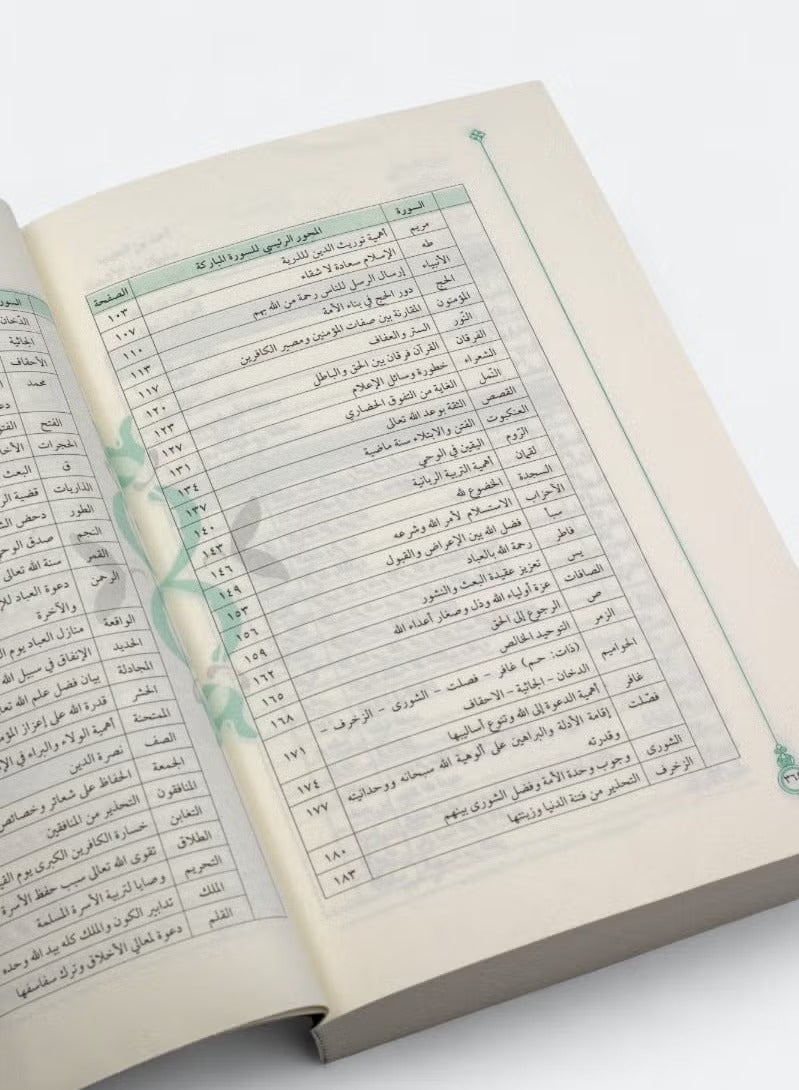 السورة المحور الرئيسي للسورة المباركة الصفحة
مريم أهمية توريث الدين للذرية ١٠٣
طه الإسلام سعادة لا شقاء ١٠٧
الأنبياء إرسال الرسل للناس رحمة من الله بهم ١١٠
الحج دور الحج في بناء الأمة ١١٣
المؤمنون المقارنة بين صفات المؤمنين ومصير الكافرين ١١٧
النور الستر والعفاف ١٢٠
الفرقان القرآن فرقان بين الحق والباطل ١٢٣
الشعراء خطورة وسائل الإعلام ١٢٧
النمل الغاية من التفوق الحضاري ١٣١
القصص الثقة بوعد الله تعالى ١٣٤
العنكبوت الفتن والابتلاء سنة ماضية ١٣٧
الروم اليقين في الوحي ١٤٠
لقمان أهمية التربية الربانية ١٤٣
السجدة الخضوع لله ١٤٦
الأحزاب الاستسلام لأمر الله وشرعه ١٤٩
سبأ فضل الله بين الإعراض والقبول ١٥٣
فاطر رحمة الله بالعباد ١٥٦
يس تعزيز عقيدة البعث والنشور ١٥٩
الصافات عزة أولياء الله وذل وصغار أعداء الله ١٦٢
ص الرجوع إلى الحق ١٦٥
الزمر التوحيد الخالص ١٦٨
الحواميم (ذات: حم) غافر – فصلت – الشورى – الزخرف –
الدخان – الجاثية – الأحقاف ١٧١
غافر أهمية الدعوة إلى الله وتنوع أساليبها ١٧٤
فصّلت إقامة الأدلة والبراهين على ألوهية الله سبحانه ووحدانيته
وقدرته ١٧٧
الشورى وجوب وحدة الأمة وفضل الشورى بينهم ١٨٠
الزخرف التحذير من فتنة الدنيا وزينتها ١٨٣
الدّخان
الجاثية
الأحقاف
محمد
الفتح
الحجرات
ق البعث
الذاريات قضية
الطور دحض
النجم صدق الوحي
القمر سنة الله تعالى
الرحمن دعوة العباد
والآخرة
الواقعة منازل العباد يوم
الحديد الإنفاق في سبيل الله
المجادلة بيان فضل علم الله
الحشر قدرة الله على إعزاز
الممتحنة أهمية الولاء والبراء في
الصف نصرة الدين
الجمعة الحفاظ على شعائر وخصائص
المنافقون التحذير من المنافقين
التغابن خسارة الكافرين الكبرى يوم
الطلاق تقوى الله تعالى سبب حفظ الأسرة
التحريم وصايا لتربية الأسرة المسلمة
الملك تدابير الكون والملك كله بيد الله وحده
القلم دعوة لمعالي الأخلاق وترك سفاسفها